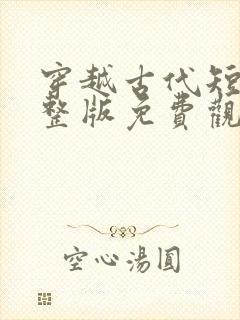 穿越古代短
整版免費觀
空心湯圓